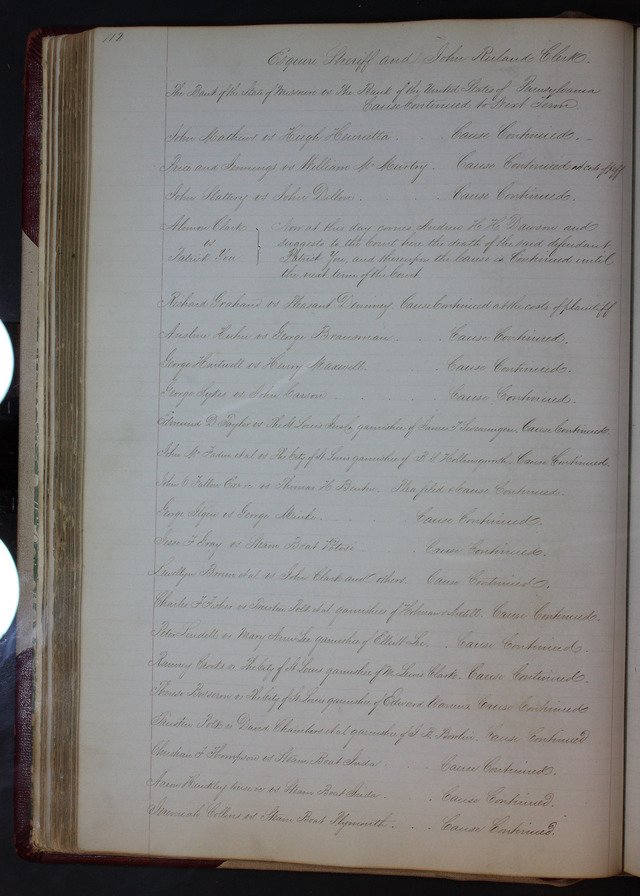 112
Esquire Sheriff and John Ruland Clerk.
The Bank of the State of Missouri vs The Bank of the United States of Pennsylvania
Cause Continued to Next Term
John Mathews vs Hugh Henrietta . . Cause Continued. -
Price and Jennings vs William Mc Murtry. Cause Continued at costs of plff
John Slattery vs John Dalton . . . . Cause Continued.
Almon Clark Now at this day comes Andrew H. H. Dawson and
vs suggests to the Court here the death of the said defendant
Patrick You Patrick You, and thereupon the Cause is Continued until
the next term of the Court
Richard Graham vs Pleasant Cause Continued at the costs of plaintiff
vs George . . . Cause Continued.
George Hartwell vs Henry Maxwell . . Cause Continued.
George Sykes vs John Carson . . . Cause Continued.
Edmund D Taylor vs The St Louis garnishee of James Cause Continued.
John Mc et al vs The City of St Louis garnishee of Hollingsworth. Cause Continued.
John O Fallon vs Thomas H. Benton Plea filed & Cause Continued.
George vs George . . . Cause Continued.
Jesse F vs Steam Boat Potosi . . . Cause Continued.
Llewllyn Brown et al vs John Clark and others. Cause Continued.
Charles F Fisher vs Trusten Polk et al garnishees of Cause Continued.
Peter Lindell vs Mary Ann Lee garnishee of Elliott Lee . . Cause Continued.
Ranney vs The City of St Louis garnishee of M. Lewis Clark. Cause Continued.
vs The City of St Louis garnishee of Edward Cause Continued
Trusten Polk vs David Chambers et al garnishees of Cause Continued
Thompson vs Steam Boat Inda . . Cause Continued.
Aaron Hinckley vs Steam Boat Inda . . Cause Continued.
Jeremiah Collins vs Steam Boat Plymouth . . . Cause Continued.